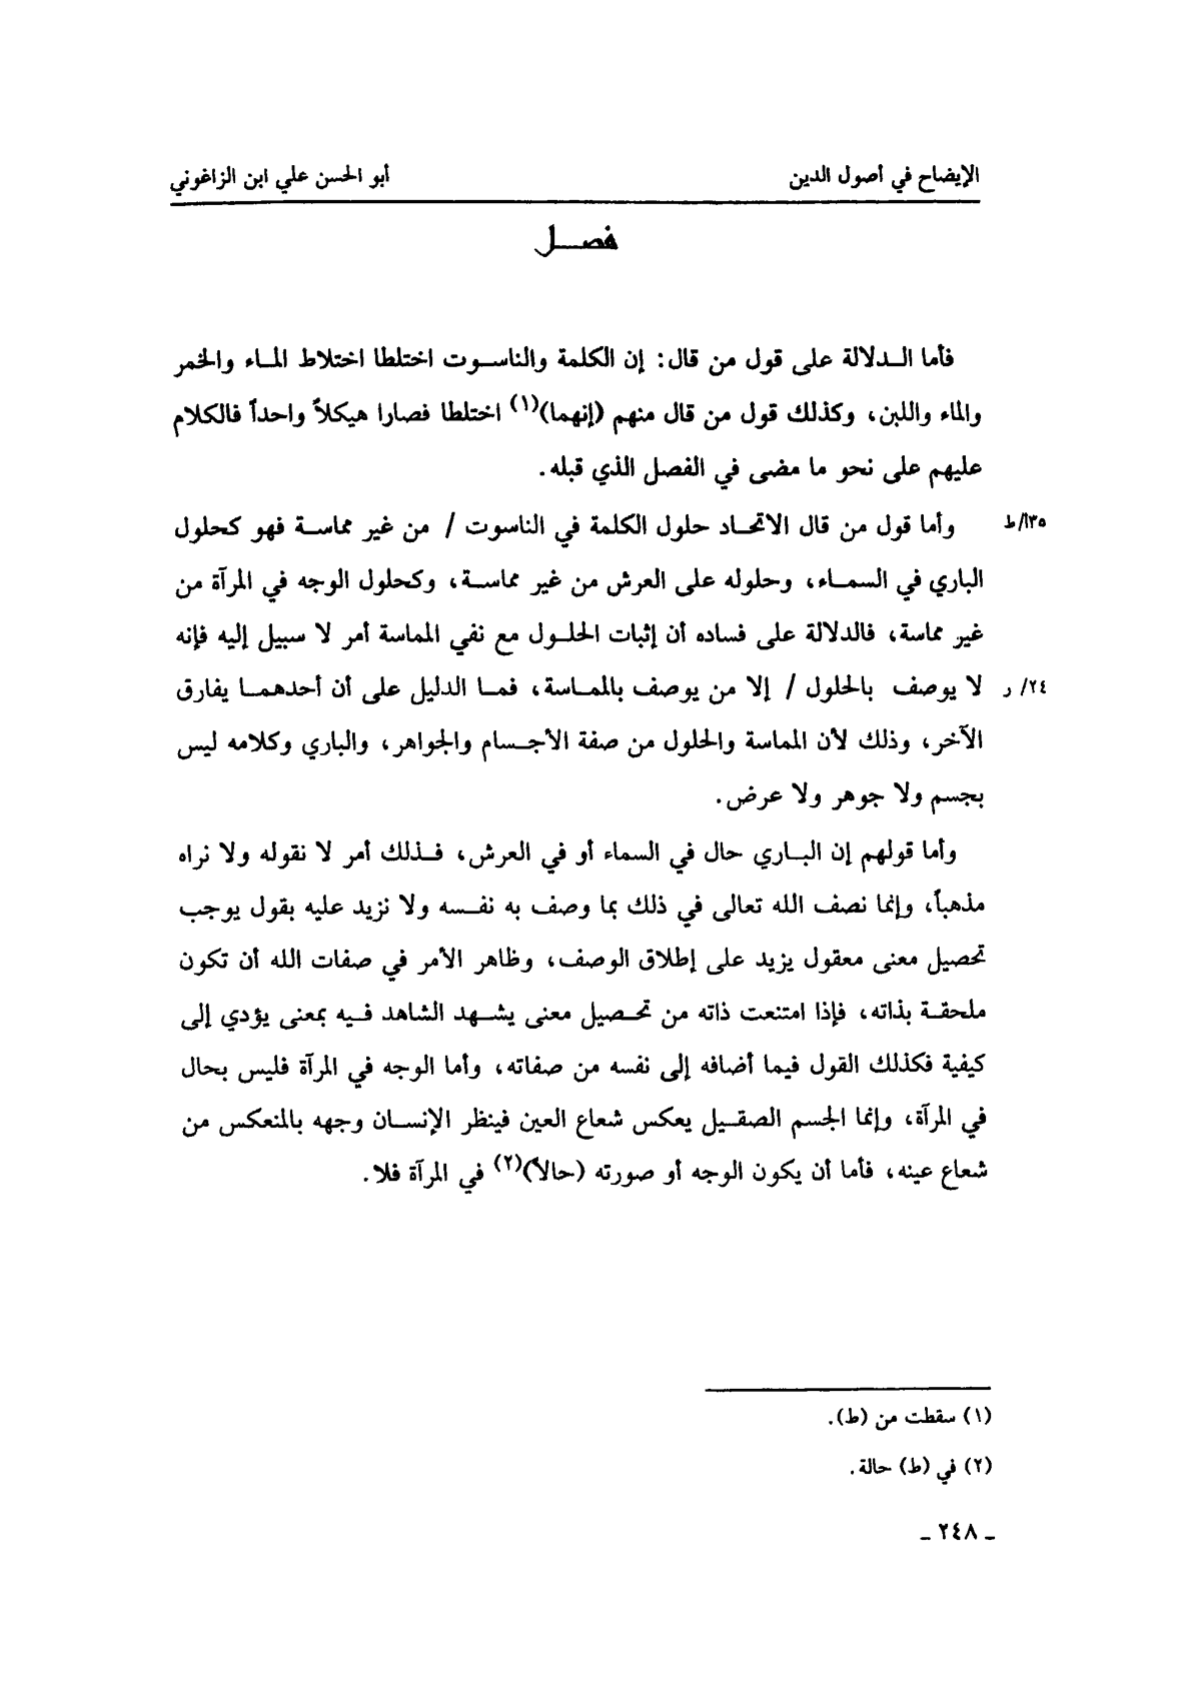 الإيضاح في أصول الدين
أبو الحسن علي ابن الزاغوني
فصل
فأما الدلالة على قول من قال: إن الكلمة والناسوت اختلطا اختلاط الماء والخمر
والماء واللبن، وكذلك قول من قال منهم (إنهما)(١) اختلطا فصارا هيكلاً واحداً فالكلام
عليهم على نحو ما مضى في الفصل الذي قبله.
وأما قول من قال الاتحاد حلول الكلمة في الناسوت / من غير مماسة فهو كحلول
٣٥أ/ط
الباري في السماء، وحلوله على العرش من غير مماسة، وكحلول الوجه في المرآة من
غير مماسة، فالدلالة على فساده أن إثبات الحلول مع نفي المماسة أمر لا سبيل إليه فإنه
لا يوصف بالحلول / إلا من يوصف بالمماسة، فما الدليل على أن أحدهما يفارق
٢٤/ ر
الآخر، وذلك لأن المماسة والحلول من صفة الأجسام والجواهر، والباري وكلامه ليس
بجسم ولا جوهر ولا عرض.
وأما قولهم إن الباري حال في السماء أو في العرش، فذلك أمر لا نقوله ولا نراه
مذهباً، وإنما نصف الله تعالى في ذلك بما وصف به نفسه ولا نزيد عليه بقول يوجب
تحصيل معنى معقول يزيد على إطلاق الوصف، وظاهر الأمر في صفات الله أن تكون
ملحقة بذاته، فإذا امتنعت ذاته من تحصيل معنى يشهد الشاهد فيه بمعنى يؤدي إلى
كيفية فكذلك القول فيما أضافه إلى نفسه من صفاته، وأما الوجه في المرآة فليس بحال
في المرآة، وإنما الجسم الصقيل يعكس شعاع العين فينظر الإنسان وجهه بالمنعكس من
شعاع عينه، فأما أن يكون الوجه أو صورته (حالاً)(٢) في المرآة فلا.
(١) سقطت من (ط).
(٢) في (ط) حالة.
ـ ٢٤٨ ـ